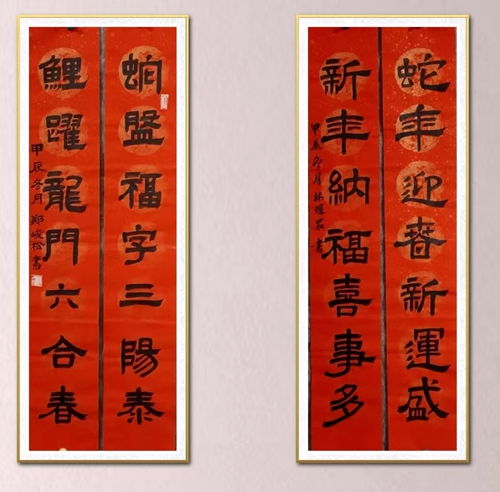 蛇年迎春新運盛
新年納福喜事多
甲辰冬月 書
福字三陽泰
鯉躍龍門六合春
甲辰冬月鄭峻松書